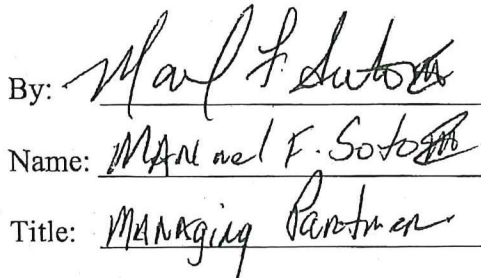 By: Manuel F. Soto
Name: MANuel F. Soto
Title: MANAging Partner